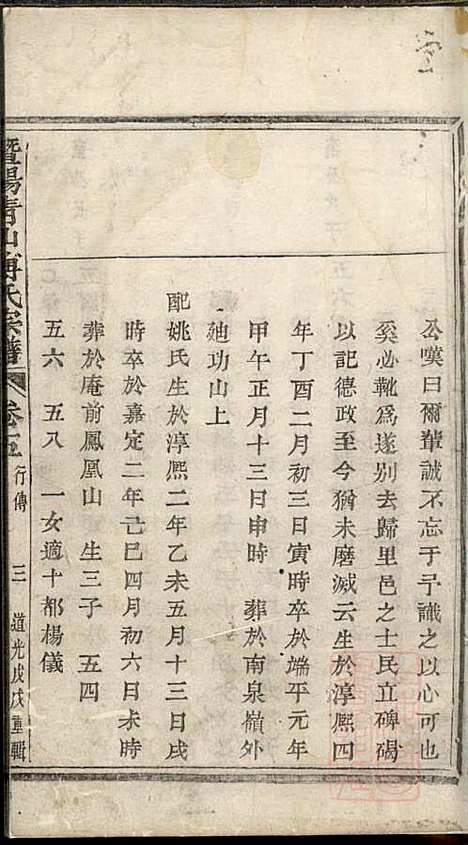 公嘆曰爾輩誠不忘于予識之以心可也
奚必靴爲遂别去歸里邑之士民立碑碣
以記德政至今猶未磨滅云生於淳熙四
年丁酉二月初三日寅時卒於端平元年
甲午正月十三日申時 葬於南泉嶺外
㐌功山上
配姚氏生於淳熙二年乙未五月十三日戌
時卒於嘉定二年己巳四月初六日未時
葬於庵前鳳凰山 生三子 五四
五六 五八 一女適十都楊儀
暨陽青山傅氏宗譜 卷之五 行傳 三 道光戊戌重輯